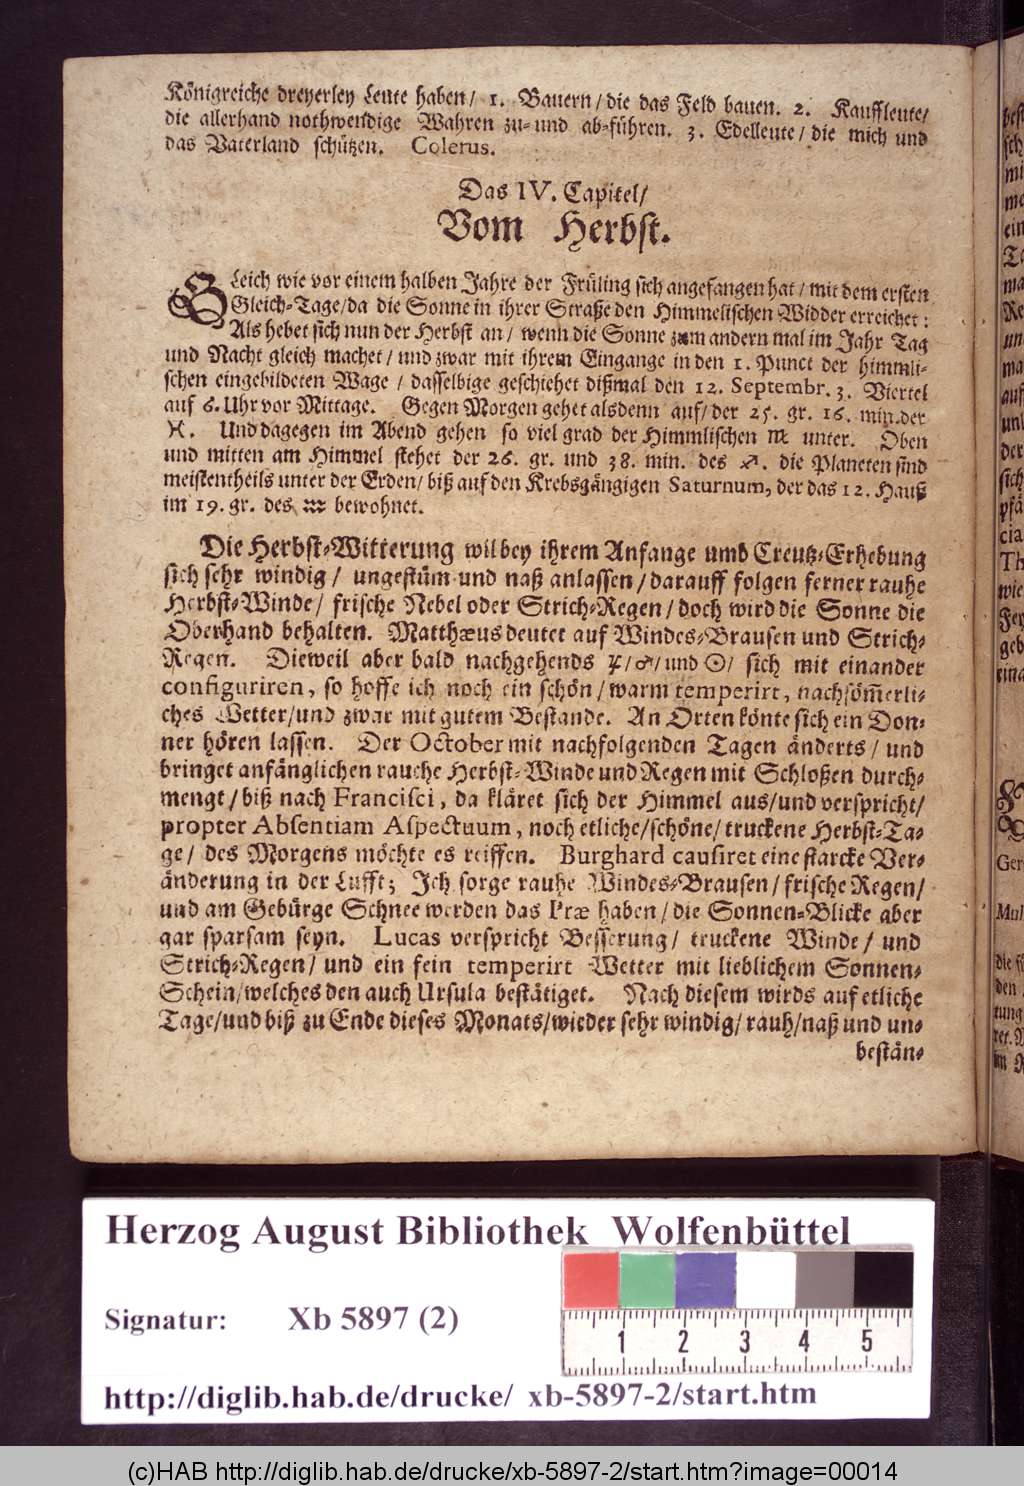 Königreiche dreyerley Leute haben/ 1. Bauern/die das Feld bauen. 2. Kauffleute/
die allerhand nothwendige Wahren zu- und ab-führen. 3. Edelleute/die mich und
das Vaterland schützen. Colerus.
Das IV. Capitel/
Vom Herbst.
GLeich wie vor einem halben Jahre der Früling sich angefangen hat/mit dem ersten
Gleich-Tage/da die Sonne in ihrer Straße den Himmelischen Widder erreichet:
Als hebet sich nun der Herbst an/ wenn die Sonne zum andern mal im Jahr Tag
und Nacht gleich machet/und zwar mit ihrem Eingange in den 1. Punct der himmli-
schen eingebildeten Wage / dasselbige geschiehet dißmal den 12. Septembr. 3. Viertel
auf 6. Uhr vor Mittage. Gegen Morgen gehet alsdenn auf/der 25. gr. 16. min. der
♓. Und dagegen im Abend gehen so viel grad der Himmlischen ♍ unter. Oben
und mitten am Himmel stehet der 26. gr. und 38. min. des ♐. die Planeten sind
meistentheils unter der Erden/biß auf den Krebsgängigen Saturnum, der das 12. Hauß
im 19. gr. des ♒ bewohnet.
Die Herbst-Witterung wil bey ihrem Anfange und Creutz-Erhebung
sich sehr windig/ ungestüm und naß anlassen/darauff folgen ferner rauhe
Herbst-Winde/ frische Nebel oder Strich-Regen/doch wird die Sonne die
Oberhand behalten. Matthæus deutet auf Windes-Brausen und Strich-
Regen. Dieweil aber bald nachgehends ♃/♂/und ☉/ sich mit einander
configuriren, so hoffe ich noch ein schön/warm temperirt, nachsöm̃erli-
ches Wetter/und zwar mit gutem Bestande. An Orten könte sich ein Don-
ner hören lassen. Der October mit nachfolgenden Tagen änderts/ und
bringet anfänglichen rauche Herbst-Winde und Regen mit Schloßen durch-
mengt/biß nach Francisci, da kläret sich der Himmel aus/und verspricht/
propter Absentiam Aspectuum, noch etliche/schöne/truckene Herbst-Ta-
ge/ des Morgens möchte es reiffen. Burghard causiret eine starcke Ver-
änderung in der Lufft; Ich sorge rauhe Windes-Brausen/frische Regen/
und am Gebürge Schnee werden das Præ haben/die Sonnen-Blicke aber
gar sparsam seyn. Lucas verspricht Besserung/ truckene Winde/ und
Strich-Regen/ und ein fein temperirt Wetter mit lieblichem Sonnen-
Schein/welches den auch Ursula bestätiget. Nach diesem wirds auf etliche
Tage/und biß zu Ende dieses Monats/wieder sehr windig/rauh/naß und un-
bestän-
Herzog August Bibliothek Wolfenbüttel
Signatur: Xb 5897 (2)
1 2 3 4 5
http://diglib.hab.de/drucke/ xb-5897-2/start.htm
(c)HAB http://diglib.hab.de/drucke/xb-5897-2/start.htm?image=00014